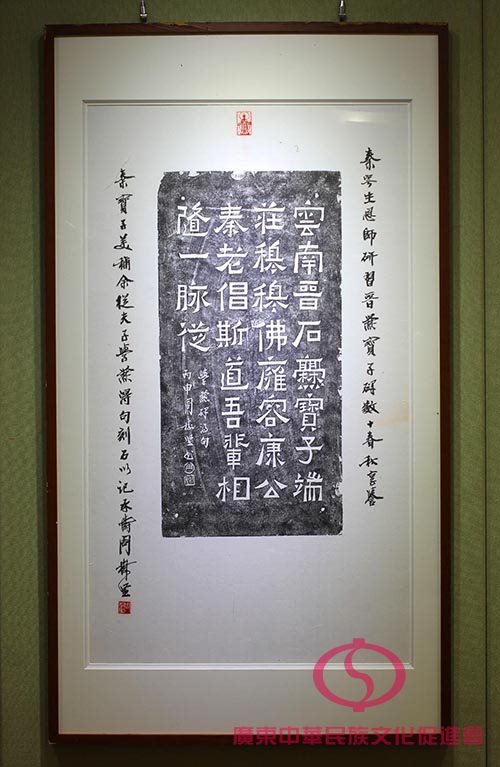 秦咢生恩師研習晉爨寶子碑數十春秋享譽
雲南晉石爨寶子端
莊穆穆佛廱容康公
秦老倡斯道吾輩相
隨一脈從
學爨碑得句
丙申周樹堅書
秦寶子美稱余從夫子學爨得句刻石以記周樹堅
廣東中華民族文化促進會